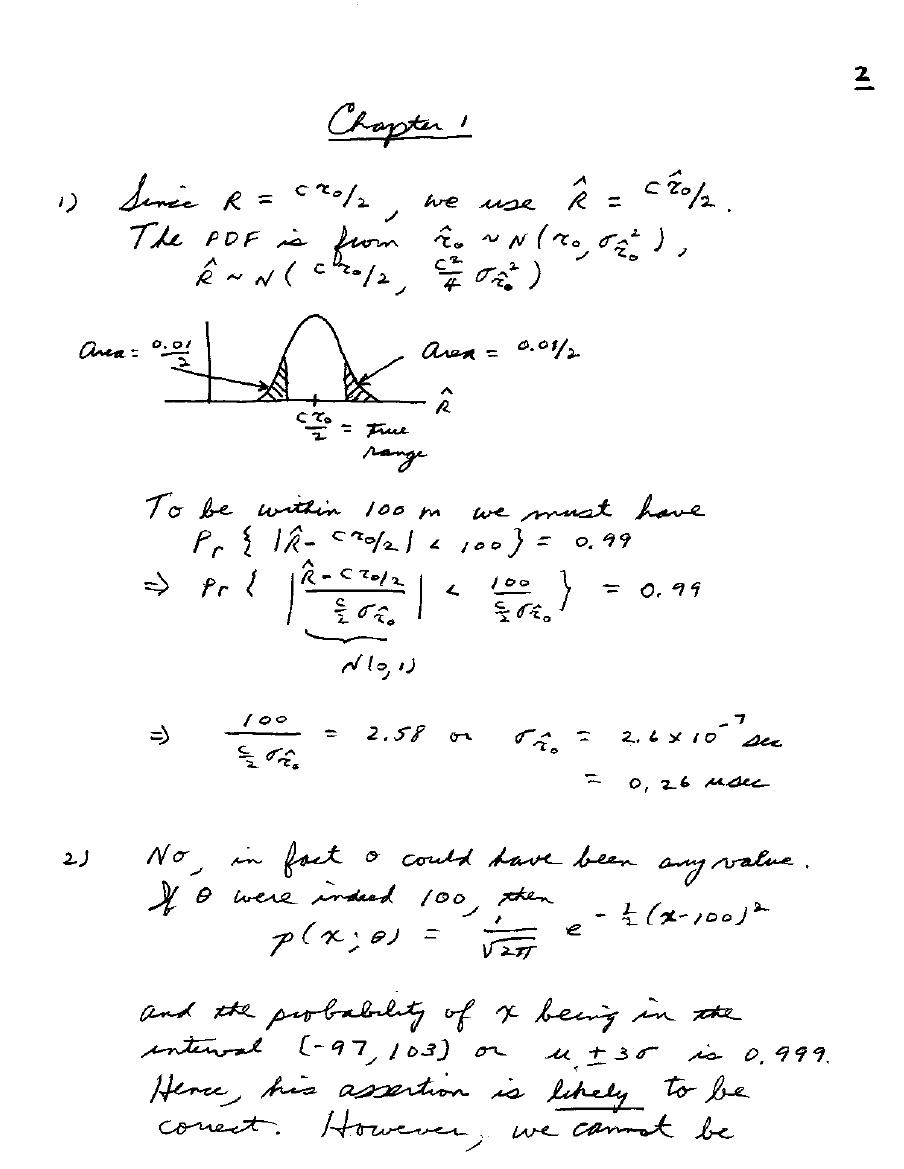 2
Chapter 1
1) Since R = cτ₀/2, we use R̂ = cτ̂₀/2.
The PDF is from τ̂₀ ~ N(τ₀, σ_τ̂₀²),
R̂ ~ N(cτ₀/2, c²/4 σ_τ̂₀²)
Area = 0.01/2 Area = 0.01/2
R̂
cτ₀/2 = true
range
To be within 100 m we must have
Pr { |R̂ - cτ₀/2| < 100 } = 0.99
⇒ Pr { | (R̂ - cτ₀/2) / (c/2 σ_τ̂₀) | < 100 / (c/2 σ_τ̂₀) } = 0.99
N(0,1)
⇒ 100 / (c/2 σ_τ̂₀) = 2.58 or σ_τ̂₀ = 2.6 × 10⁻⁷ sec
= 0.26 μsec
2) No, in fact θ could have been any value.
If θ were indeed 100, then
p(x; θ) = 1/√2π e^{-½(x-100)²}
and the probability of x being in the
interval [-97, 103] or μ ± 3σ is 0.999.
Hence, his assertion is likely to be
correct. However, we cannot be